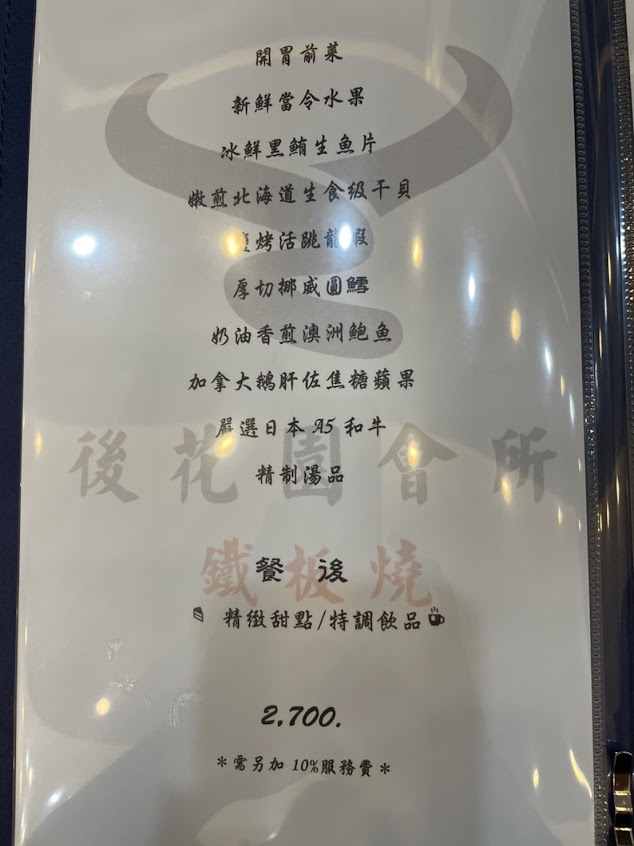 開胃前菜
新鮮當令水果
冰鮮黑鮪生魚片
嫩煎北海道生食級干貝
烤活跳龍蝦
厚切挪威圓鱈
奶油香煎澳洲鮑魚
加拿大鵝肝佐焦糖蘋果
嚴選日本 A5 和牛
後花園會所
精制湯品
鐵板燒
餐 後
精緻甜點/特調飲品
2,700.
*需另加 10%服務費*